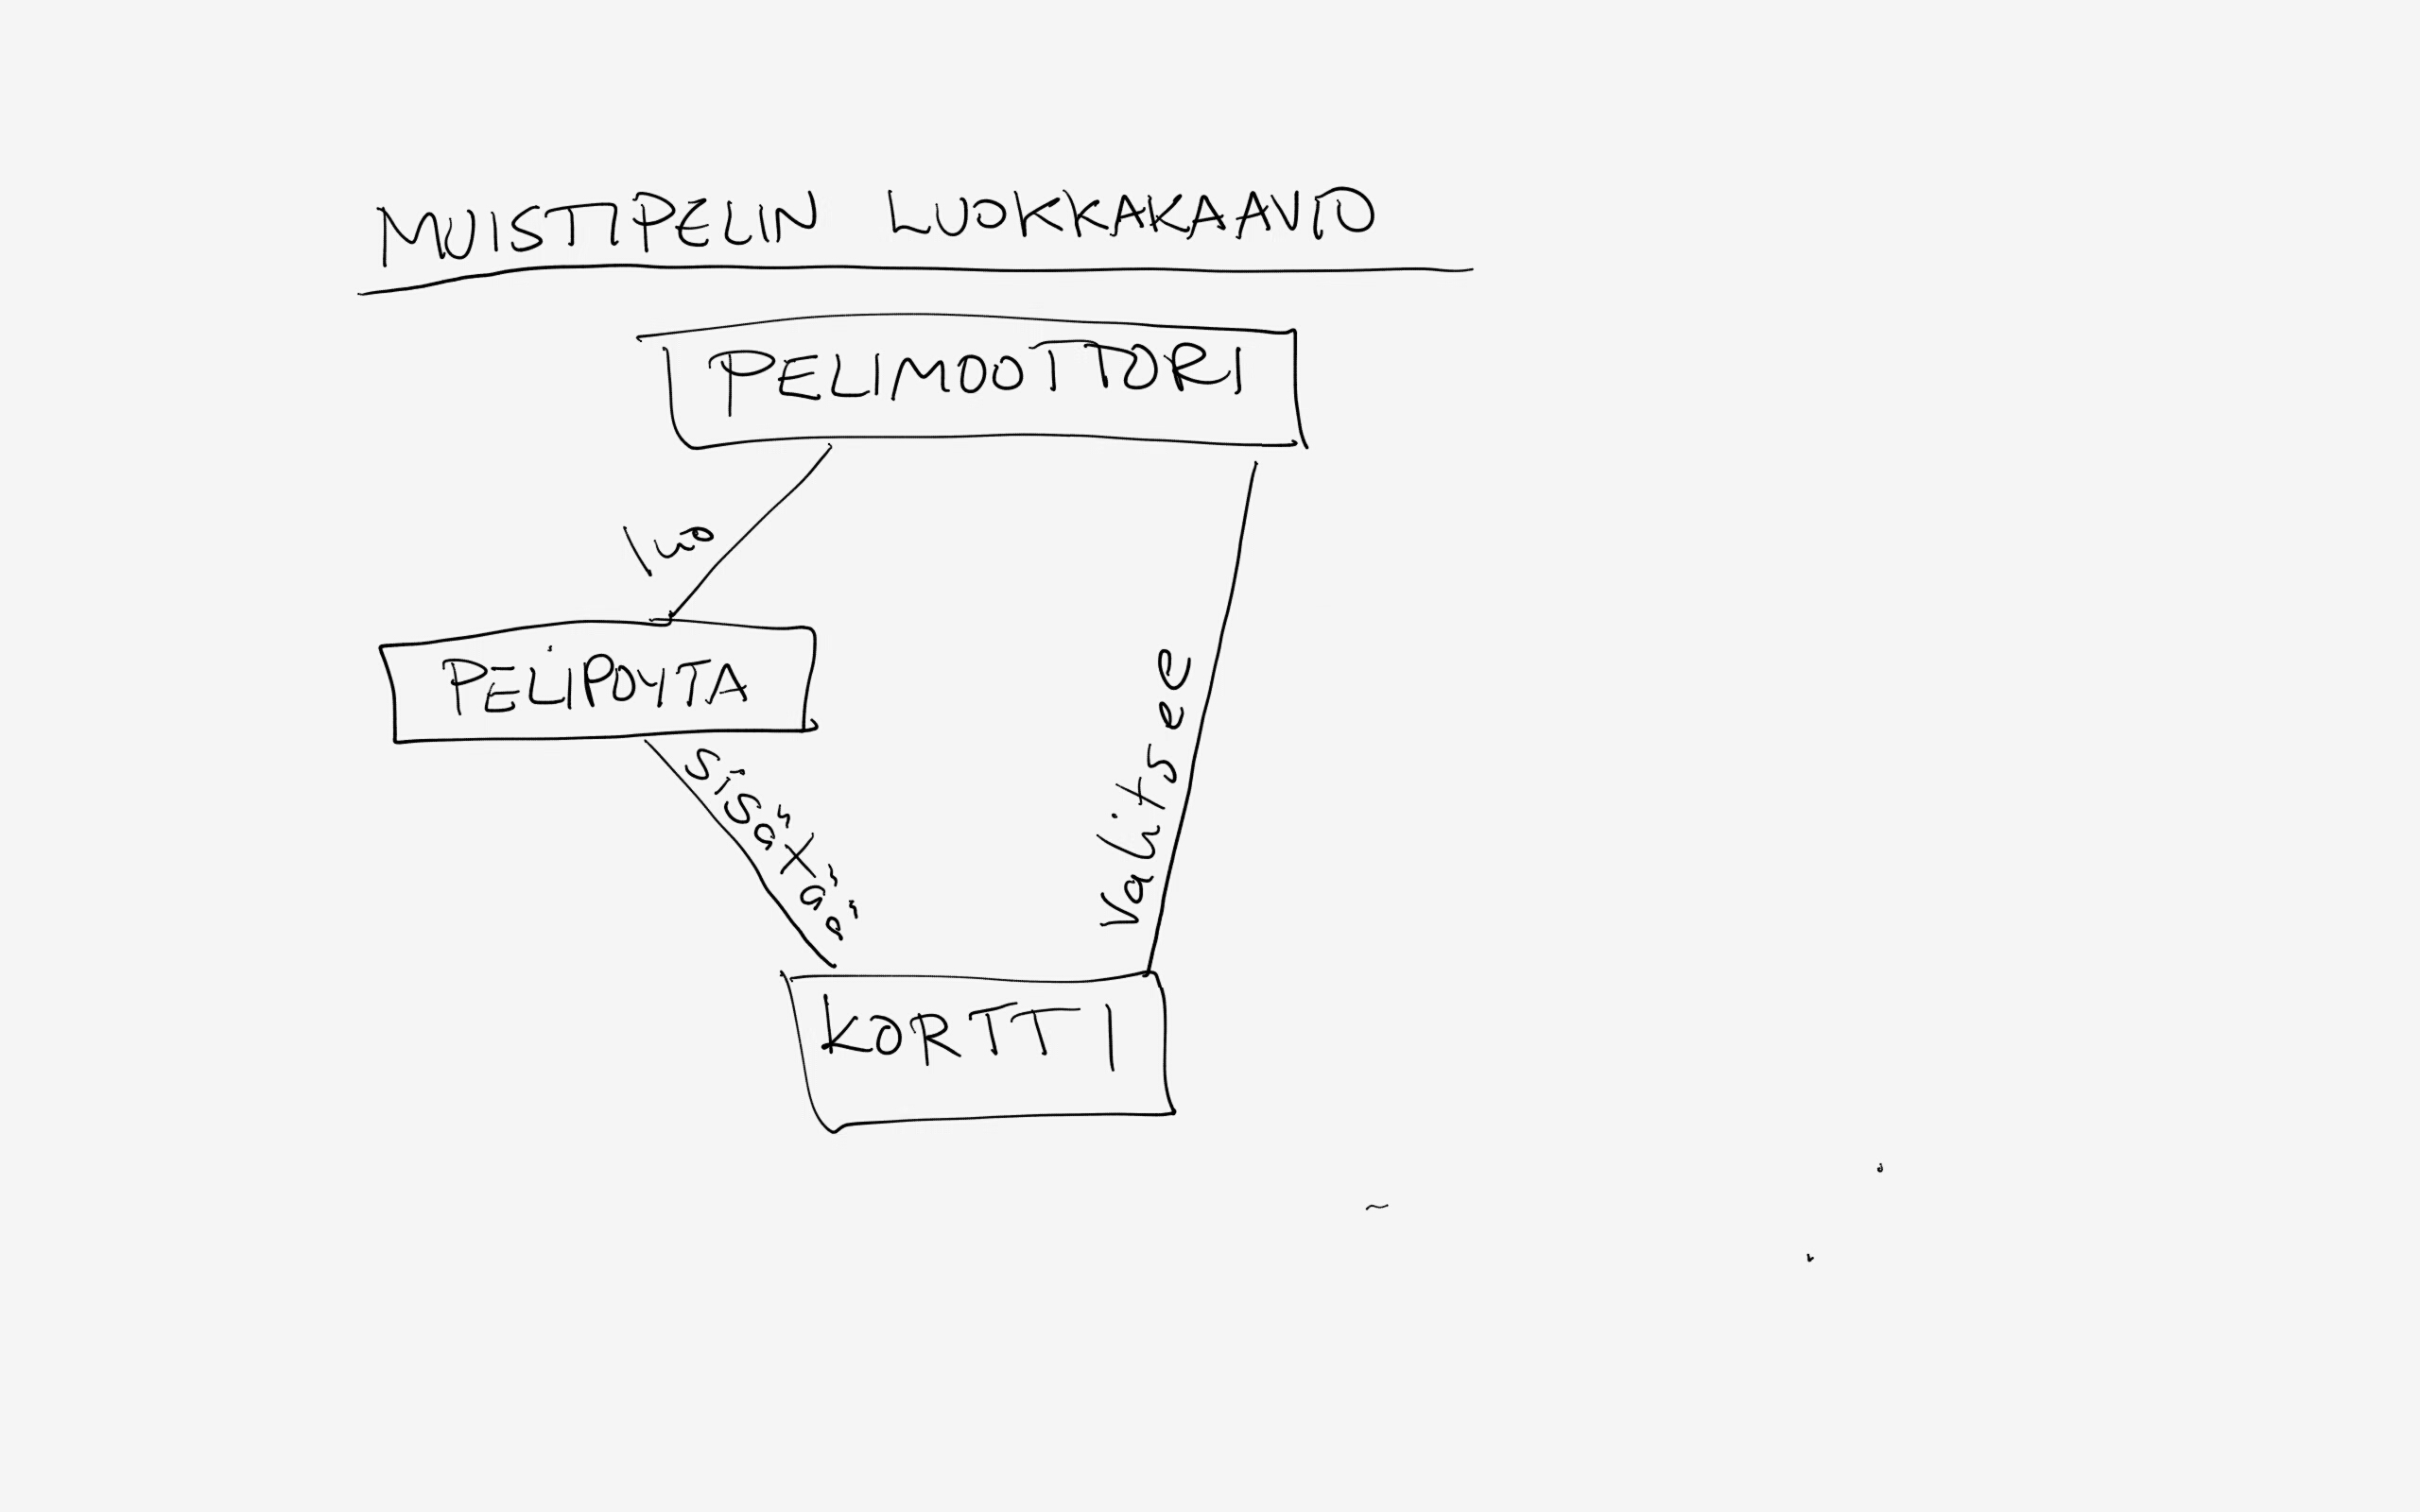 MUISTIPELIN LUOKKAKAAVIO
PELIMOOTTORI
luo
PELIPOYTA
sisältää
valitsee
KORTTI